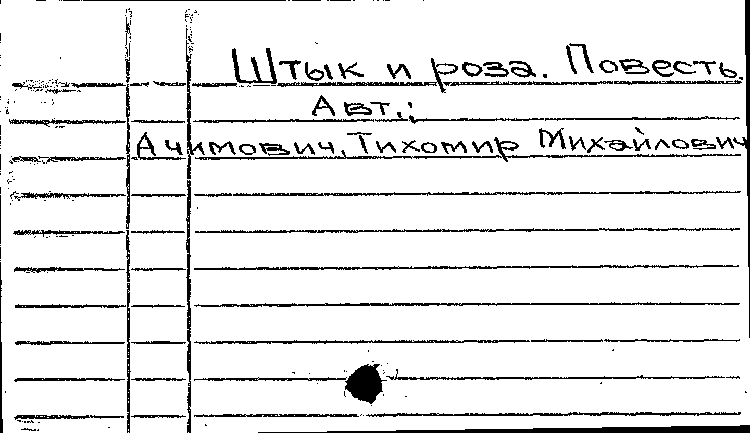 Штык и роза. Повесть.
Авт.:
Ачимович, Тихомир Михайлович